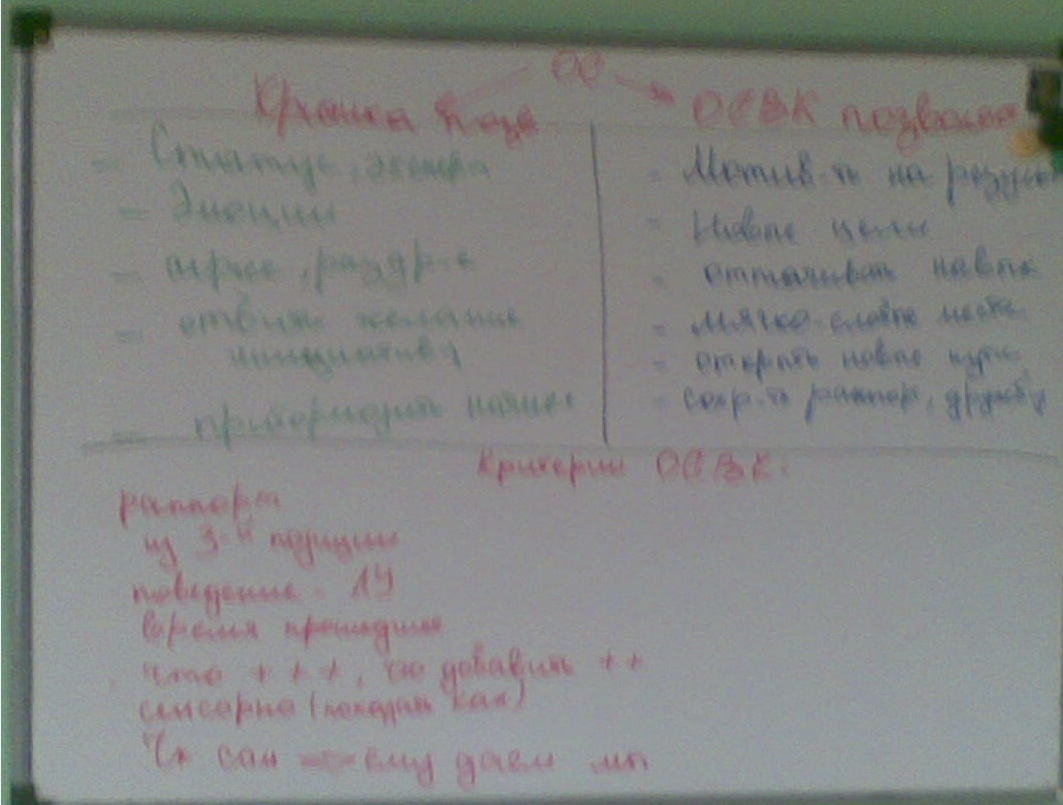 ОС
Критика позв.
- Статус,
- Эмоции
- агресс, раздр-е
- отбить желание
инициативу
- притормозить
ОСВК позволяет
- Мотив-ть на результ
- Новые цели
- оттачивать навык
- мягко слабые места
- открыть новые пути
- сохр-ть раппор, дружбу
Критерии ОСВК.
раппорт
из 3-й позиции
поведение - ЛУ
время прошедшее
что + + +, что добавить ++
сенсорно (показать как)
Чк сам ему даем